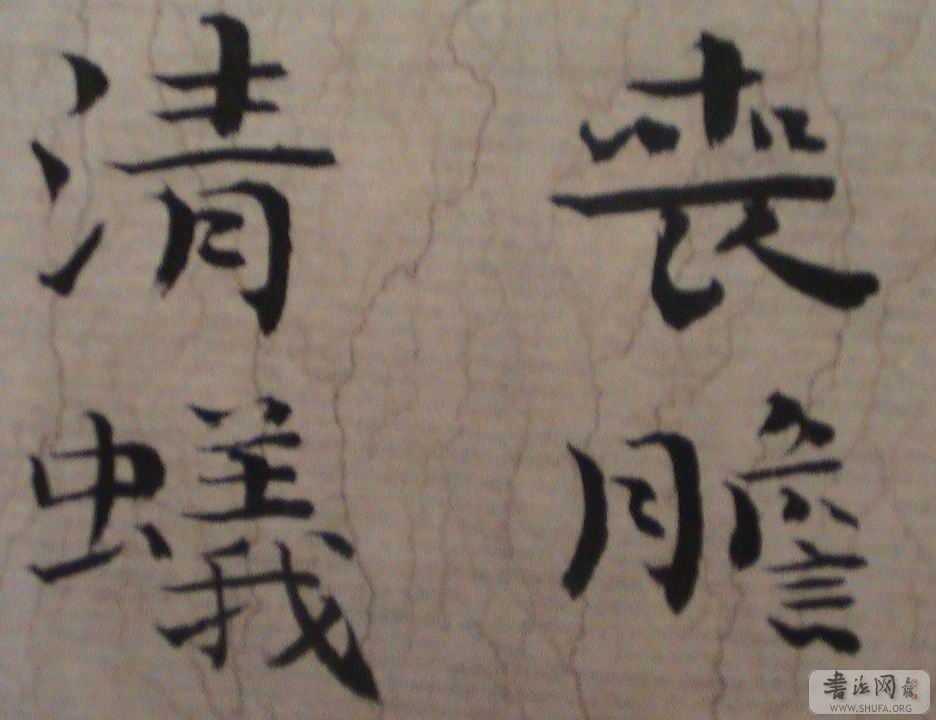 喪膽
清蟻
書法网
WWW.SHUFA.ORG